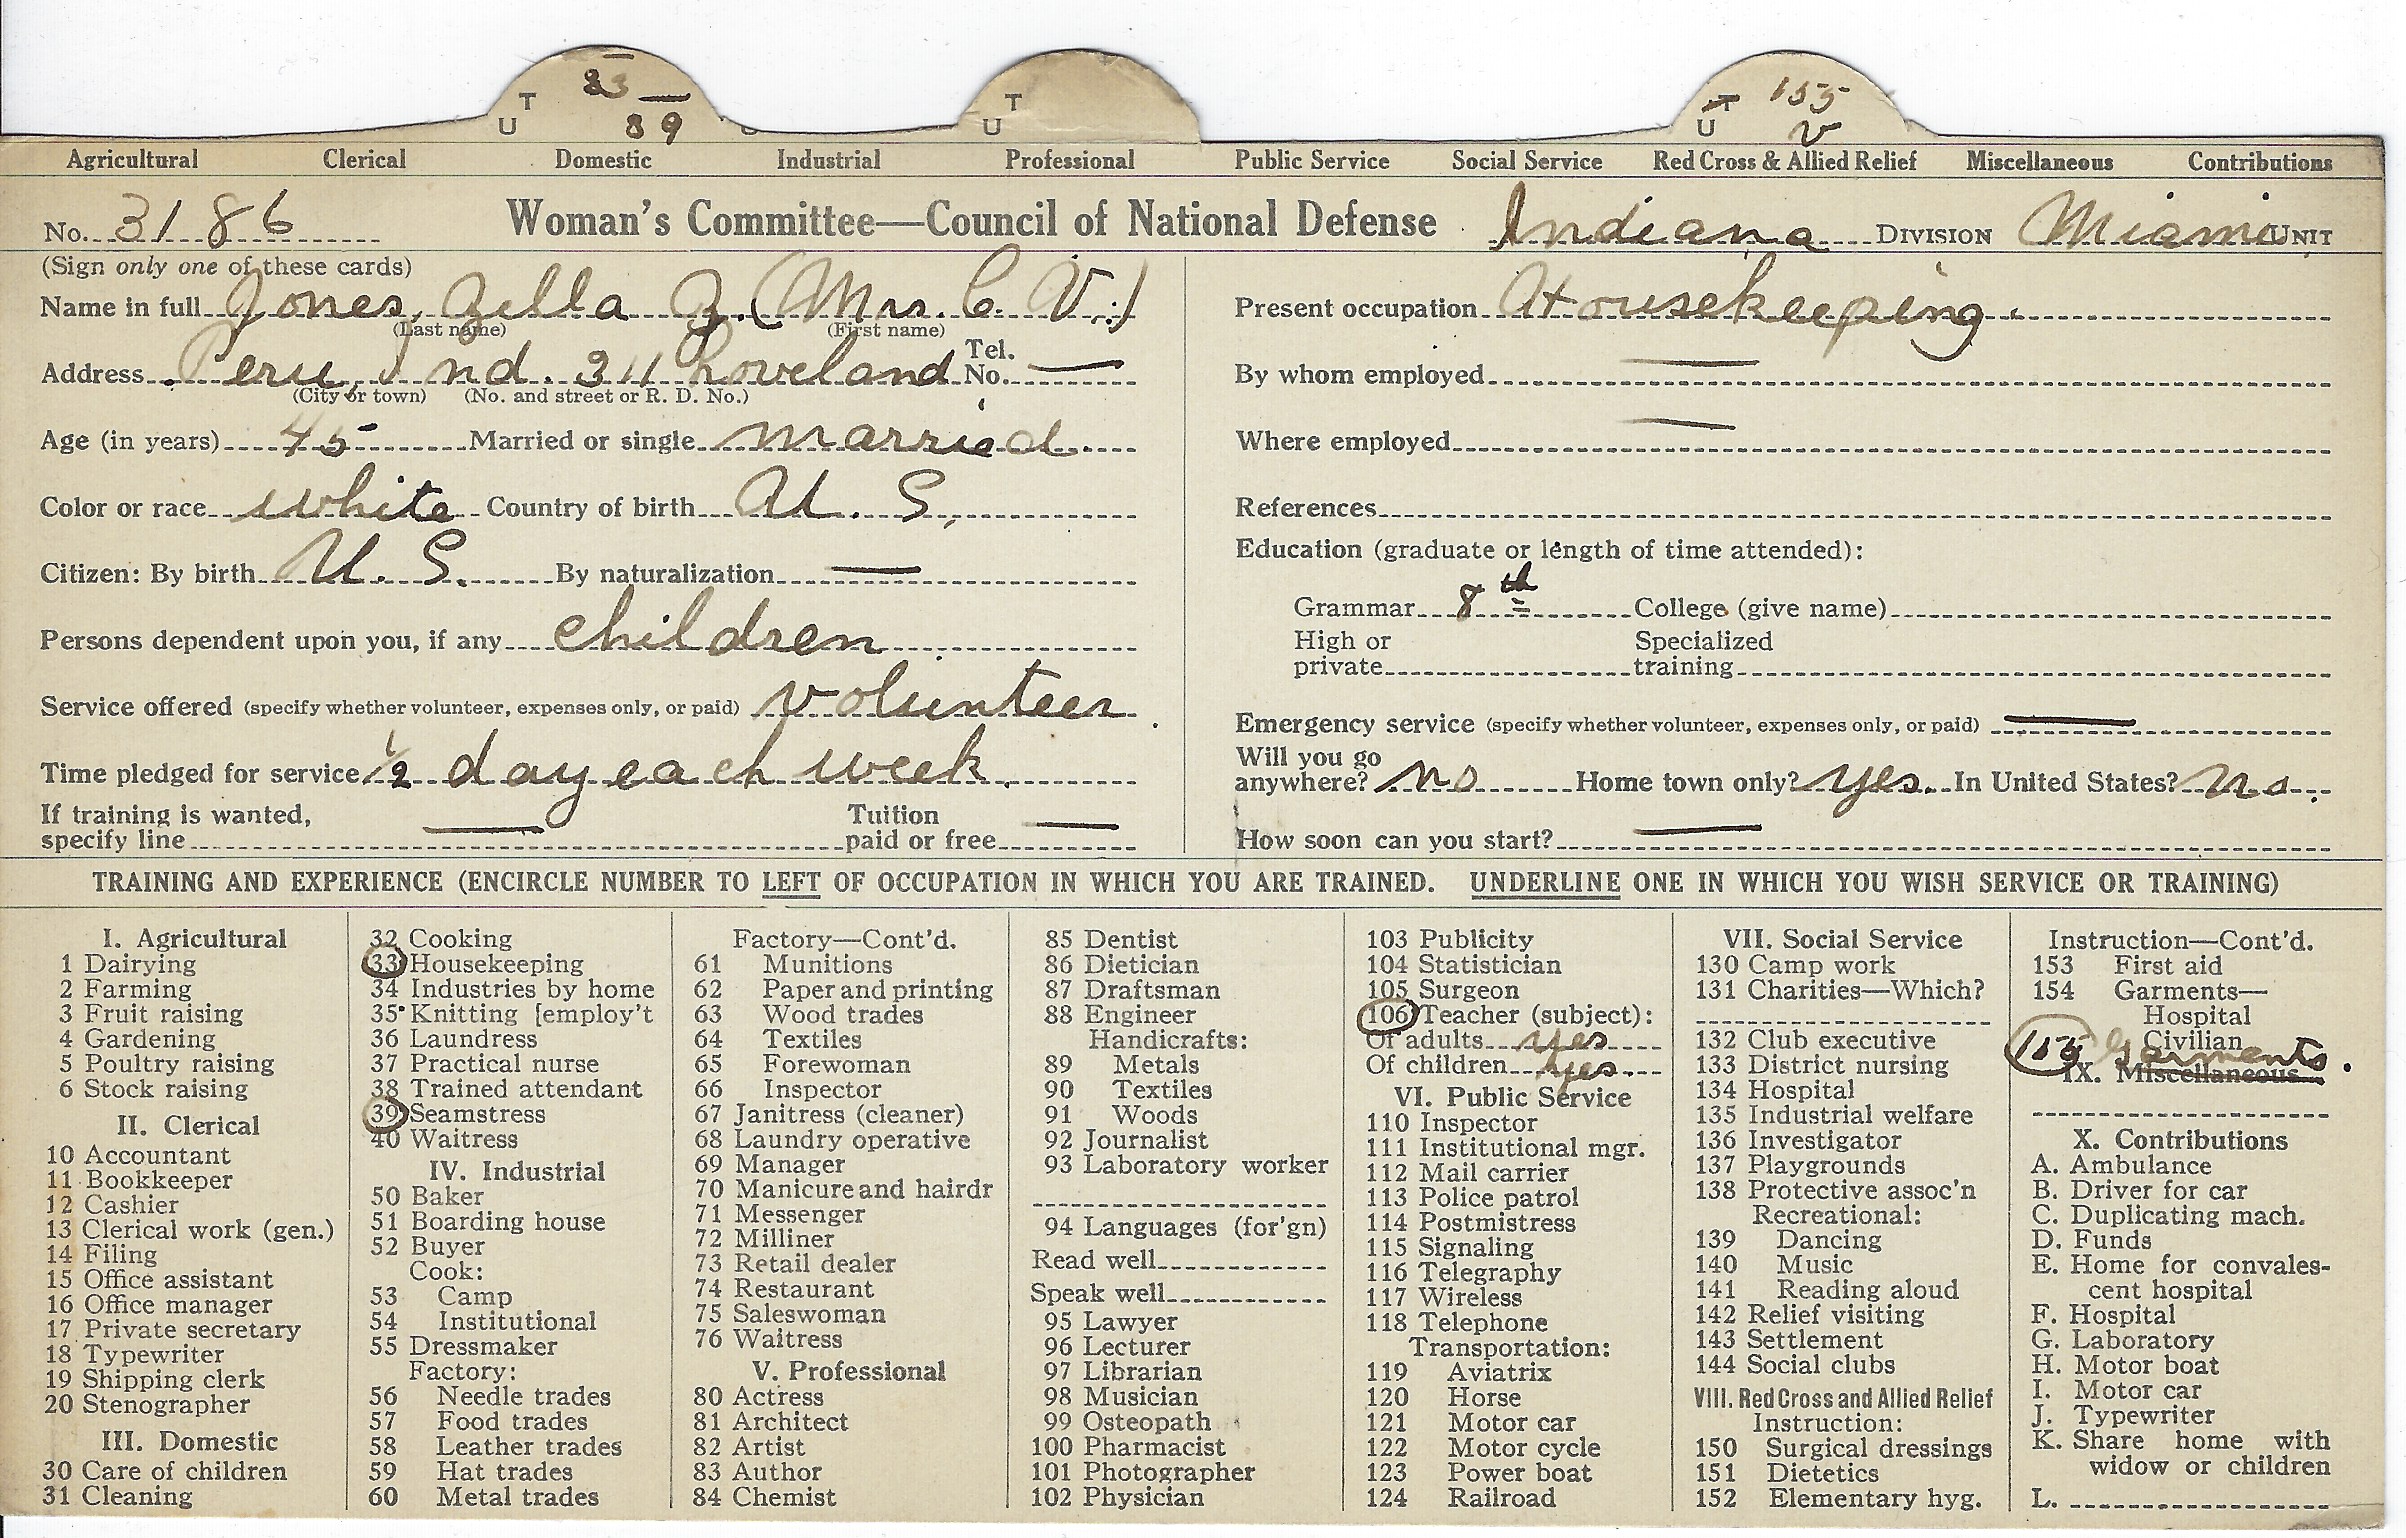 33
T — 155
U 39 T T
U U v
Agricultural Clerical Domestic Industrial Professional Public Service Social Service Red Cross & Allied Relief Miscellaneous Contributions
No. 3186 Woman's Committee—Council of National Defense Indiana DIVISION Miami UNIT
(Sign only one of these cards)
Name in full Jones, Zella Z. (Mrs. C. V.)
(Last name) (First name)
Address Peru, Ind. 311 Loveland Tel. No. —
(City or town) (No. and street or R. D. No.)
Age (in years) 45 Married or single married.
Color or race white Country of birth U. S.
Citizen: By birth U. S. By naturalization —
Persons dependent upon you, if any children
Service offered (specify whether volunteer, expenses only, or paid) volunteer.
Time pledged for service 1/2 day each week.
If training is wanted, Tuition
specify line — paid or free —
Present occupation Housekeeping.
By whom employed —
Where employed —
References
Education (graduate or length of time attended):
Grammar 8th College (give name)
High or Specialized
private training
Emergency service (specify whether volunteer, expenses only, or paid) —
Will you go
anywhere? no Home town only? yes. In United States? no.
How soon can you start? —
TRAINING AND EXPERIENCE (ENCIRCLE NUMBER TO LEFT OF OCCUPATION IN WHICH YOU ARE TRAINED. UNDERLINE ONE IN WHICH YOU WISH SERVICE OR TRAINING)
I. Agricultural
1 Dairying
2 Farming
3 Fruit raising
4 Gardening
5 Poultry raising
6 Stock raising
II. Clerical
10 Accountant
11 Bookkeeper
12 Cashier
13 Clerical work (gen.)
14 Filing
15 Office assistant
16 Office manager
17 Private secretary
18 Typewriter
19 Shipping clerk
20 Stenographer
III. Domestic
30 Care of children
31 Cleaning
32 Cooking
33 Housekeeping
34 Industries by home
35 Knitting [employ't
36 Laundress
37 Practical nurse
38 Trained attendant
39 Seamstress
40 Waitress
IV. Industrial
50 Baker
51 Boarding house
52 Buyer
Cook:
53 Camp
54 Institutional
55 Dressmaker
Factory:
56 Needle trades
57 Food trades
58 Leather trades
59 Hat trades
60 Metal trades
Factory—Cont'd.
61 Munitions
62 Paper and printing
63 Wood trades
64 Textiles
65 Forewoman
66 Inspector
67 Janitress (cleaner)
68 Laundry operative
69 Manager
70 Manicure and hairdr
71 Messenger
72 Milliner
73 Retail dealer
74 Restaurant
75 Saleswoman
76 Waitress
V. Professional
80 Actress
81 Architect
82 Artist
83 Author
84 Chemist
85 Dentist
86 Dietician
87 Draftsman
88 Engineer
Handicrafts:
89 Metals
90 Textiles
91 Woods
92 Journalist
93 Laboratory worker
94 Languages (for'gn)
Read well
Speak well
95 Lawyer
96 Lecturer
97 Librarian
98 Musician
99 Osteopath
100 Pharmacist
101 Photographer
102 Physician
103 Publicity
104 Statistician
105 Surgeon
106 Teacher (subject):
Of adults yes
Of children yes
VI. Public Service
110 Inspector
111 Institutional mgr.
112 Mail carrier
113 Police patrol
114 Postmistress
115 Signaling
116 Telegraphy
117 Wireless
118 Telephone
Transportation:
119 Aviatrix
120 Horse
121 Motor car
122 Motor cycle
123 Power boat
124 Railroad
VII. Social Service
130 Camp work
131 Charities—Which?
132 Club executive
133 District nursing
134 Hospital
135 Industrial welfare
136 Investigator
137 Playgrounds
138 Protective assoc'n
Recreational:
139 Dancing
140 Music
141 Reading aloud
142 Relief visiting
143 Settlement
144 Social clubs
VIII. Red Cross and Allied Relief
Instruction:
150 Surgical dressings
151 Dietetics
152 Elementary hyg.
Instruction—Cont'd.
153 First aid
154 Garments—
Hospital
Civilian
155 Garments.
IX. Miscellaneous
X. Contributions
A. Ambulance
B. Driver for car
C. Duplicating mach.
D. Funds
E. Home for convales-
cent hospital
F. Hospital
G. Laboratory
H. Motor boat
I. Motor car
J. Typewriter
K. Share home with
widow or children
L.